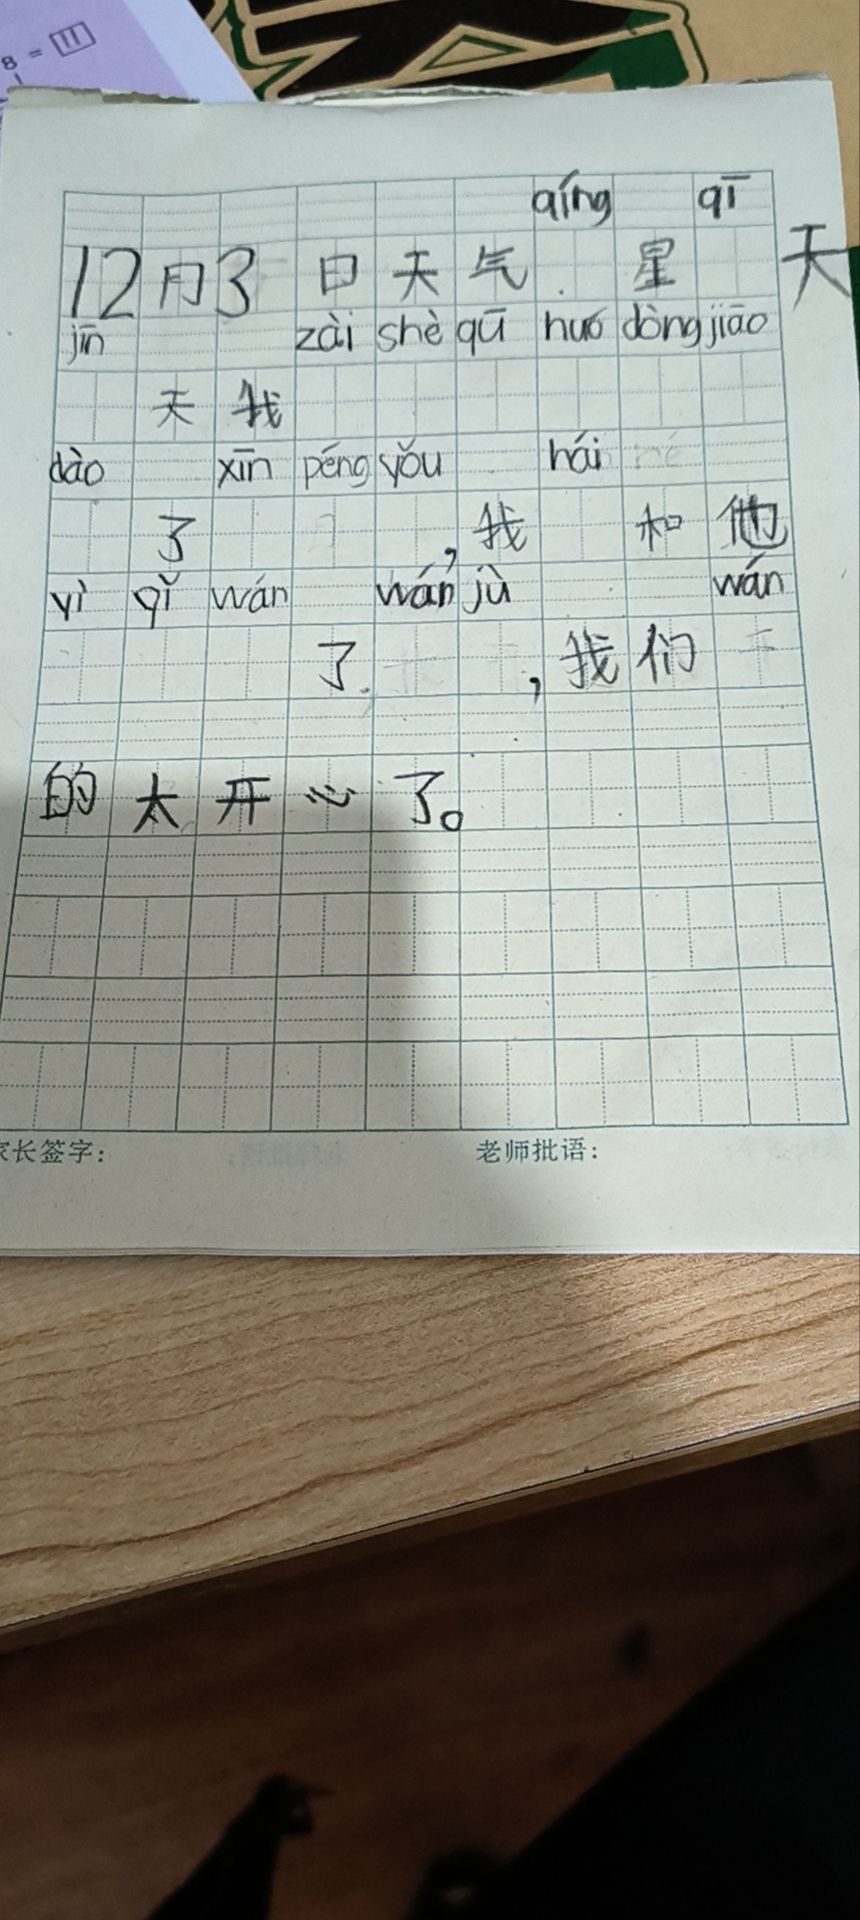 8 = 11
qíng qī
12月3日天气 星 天
jīn zài shè qū huó dòng jiāo
天我
dào xīn péng yǒu hái
了 ，我 和他
yì qǐ wán wán jù wán
了 ，我们
的太开心了。
家长签字： 老师批语：